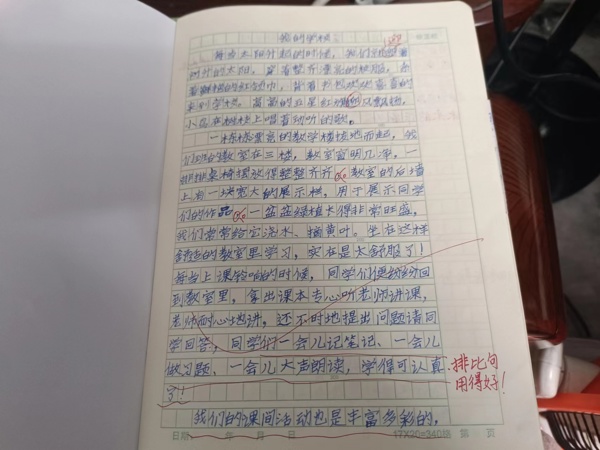 我的学校
每当太阳升起的时候，我们
的太阳，穿着整齐漂亮的校服，
着鲜艳的红领巾，背着书包
来到学校。高高的五星红旗迎风飘扬，
小鸟在树枝上唱着动听的歌。
一栋栋漂亮的教学楼拔地而起，我
们的教室在三楼，教室窗明几净，一
排排桌椅摆放得整整齐齐。教室的后墙
上有一块宽大的展示栏，用于展示同学
们的作品。一盆盆绿植长得非常旺盛，
我们常常给它浇水、摘黄叶。坐在这样
舒适的教室里学习，实在是太舒服了！
每当上课铃响的时候，同学们便纷纷回
到教室里，拿出课本专心听老师讲课，
老师耐心地讲，还不时地提出问题请同
学回答，同学们一会儿记笔记、一会儿
做习题、一会儿大声朗读，学得可认真
了！
排比句
用得好！
我们的课间活动也是丰富多彩的，
日期 年 月 日
17X20=340格 第 页